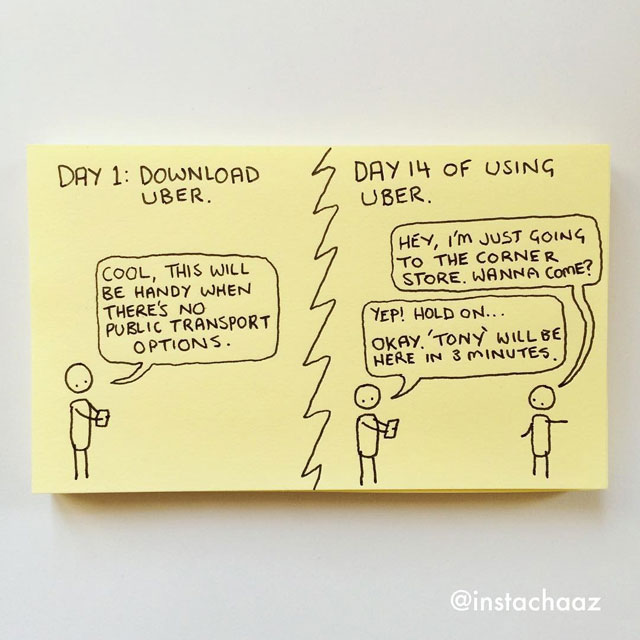 DAY 1: DOWNLOAD
UBER.
COOL, THIS WILL
BE HANDY WHEN
THERE'S NO
PUBLIC TRANSPORT
OPTIONS.
DAY 14 OF USING
UBER.
HEY, I'M JUST GOING
TO THE CORNER
STORE. WANNA COME?
YEP! HOLD ON...
OKAY. 'TONY' WILL BE
HERE IN 3 MINUTES.
@instachaaz